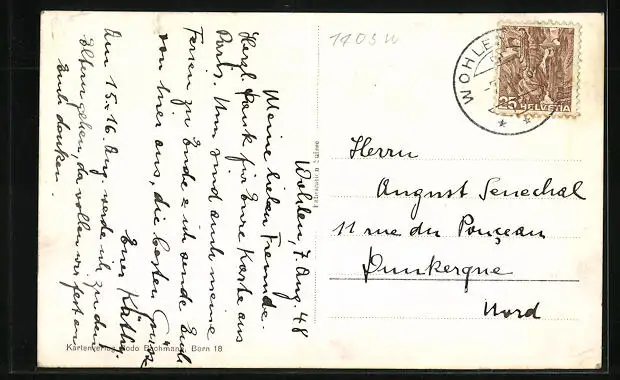 Wohlen, 7 Aug. 48
Meine lieben Freunde.
Herzl. Dank für Eure Karte aus
Paris. Nun sind auch meine
Ferien zu Ende & ich sende Euch
von hier aus, die besten Grüsse
Eure Käthi
Am 15. 16. Aug. werde ich zu den
Eltern gehen, da wollen wir fest an
Euch denken
Kartenverlag Bodo Bachmann, Bern 18
1703W
WOHLE
25 HELVETIA
Herrn
August Senechal
11 rue du Ponceau
Dunkerque
Nord